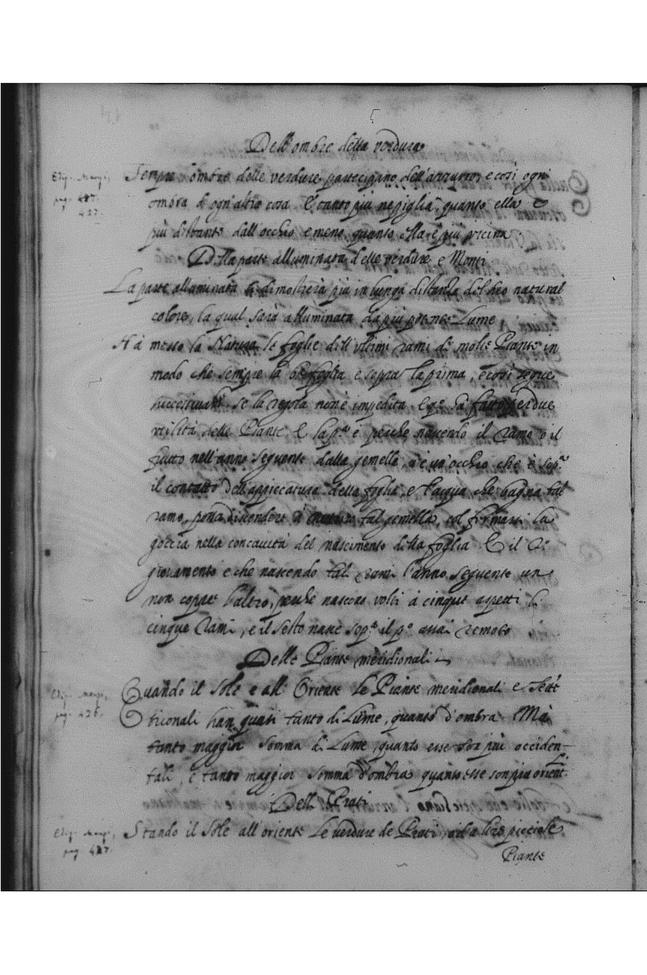 Dell'ombre della verdura
Sempre l'ombre delle verdure partecipano dell'azzurro, e così ogni
ombra di ogn'altra cosa. E tanto più ne piglia, quanto ella è
più distante dall'occhio, e meno, quanto ella è più vicina
Della parte alluminata delle verdure e Monti
La parte alluminata si dimostrerà più in lunga distanza del suo natural
colore, la qual sarà alluminata da più potente Lume
Hà messo la Natura le foglie delli ultimi rami di molte Piante in
modo che sempre la sesta foglia è sopra la prima, e così segue
successivam.te se la regola non è impedita, E q.o hà fatto per due
utilità delle Piante E la p.a è perche nascendo il ramo ò il
frutto nell'anno seguente dalla gemella, ò un'occhio che è sop.a
il contatto dell'appiccatura della foglia, e l'acqua che bagna tal
ramo, possa discendere à tal gemella, col fermarsi la
goccia nella concavità del nascimento della foglia E il 2o
giovamento è che nascendo tal rami l'anno seguente un
non copra l'altro, perche nascono volti à cinque aspetti li
cinque Rami, e il sesto nasce sop.a il p.o assai remoto
Delle Piante meridionali
Quando il Sole è all'Oriente le Piante meridionali e Setten
trionali han quasi tanto di Lume, quanto d'ombra. Mà
tanto maggior Somma di Lume, quanto esse son più occiden-
tali, e tanto maggior Somma d'ombra quanto esse son più orient.li
Delli Prati
Stando il Sole all'oriente Le verdure de Prati, et altre picciole
Piante